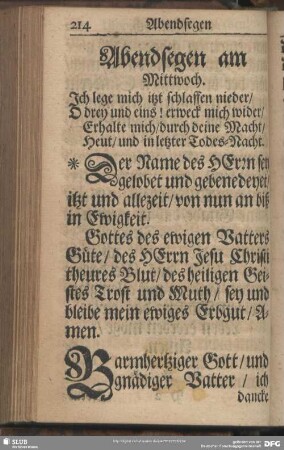 214 Abendsegen
Abendsegen am
Mittwoch.
Ich lege mich itzt schlaffen nieder/
O drey und eins! erweck mich wider/
Erhalte mich/durch deine Macht/
Heut/ und in letzter Todes-Nacht.
* Der Name des HErrn sey
gelobet und gebenedeyet/
itzt und allezeit/ von nun an biß
in Ewigkeit.
Gottes des ewigen Vatters
Güte/ des HErrn Jesu Christi
theures Blut/ des heiligen Gei-
stes Trost und Muth/ sey und
bleibe mein ewiges Erbgut/ A-
men.
Barmhertziger Gott/ und
gnädiger Vatter/ ich
dancke
SLUB
DFG